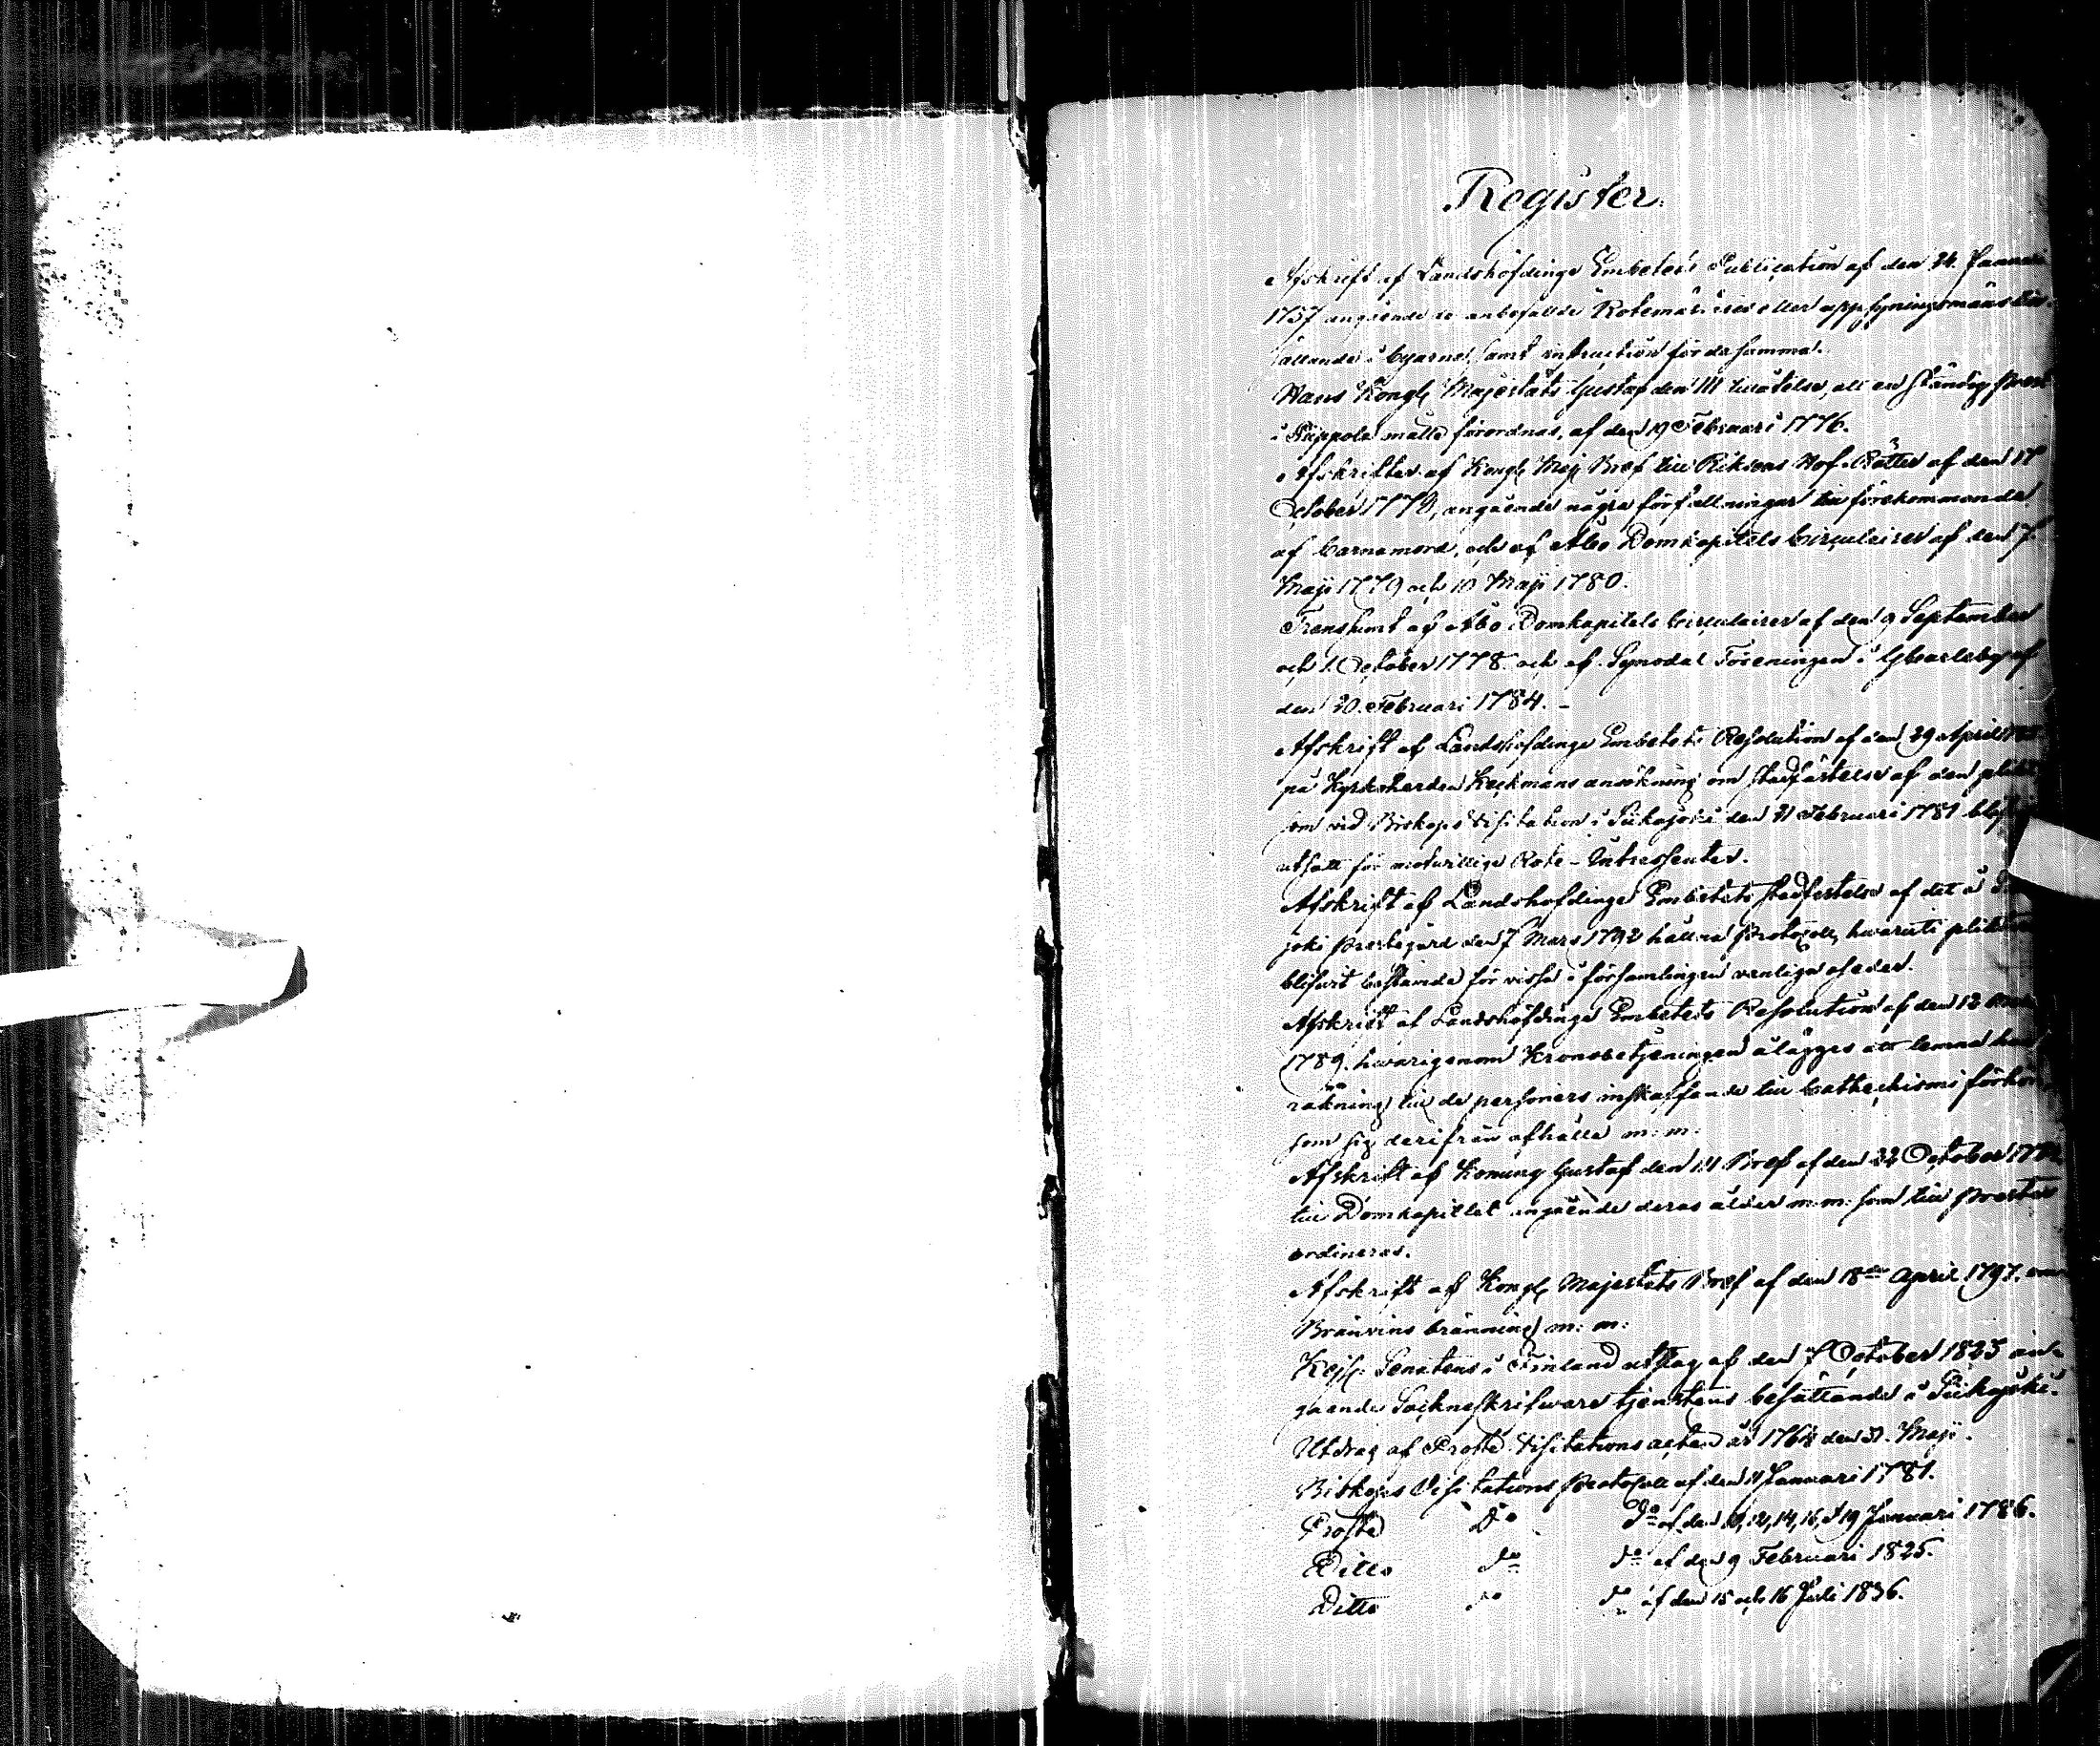 Register.
Afskrift af Landshöfdinge Embetets Publication af den 24. Januari
1757 angående de anbefallde Rotemästares eller uppsyningsmäns till-
sättande i byarne, samt instruction för desamma.
Hans Kongl Majestäts Gustaf den III tillåtelse, att en ständig Prest
i Pippola måtte förordnas, af den 19 Februari 1776.
Afskrifter af Kongl Maj Bref till Riksens Hof-Rätter af den 17
October 1778, angående några författningar till förekommande
af barnamord, och af Åbo Domkapitels Circulairer af den 7
Maji 1779 och 10 Maji 1780.
Transsumt af Åbo Domkapitels Circulairer af den 9 September
och 1. October 1778 och af Synodal Föreningen i Gkarleby af
den 20. Februari 1784. -
Afskrift af Landshöfdinge Embetets Resolution af den 29 April
på Kyrkoherden Keckmans ansökning om stadfästelse af den plikt
som vid Biskops Visitation i Siikajoki den 11 Februari 1781 blef
utsatt för motvillige Rote-Intressenter.
Afskrift af Landshöfdinge Embetets stadfästelse af det i
joki Prestegård den 7 Mars 1792 hållna Protocoll, hvaruti plikt
blifvit bestämde för vissa i församlingen vanliga oseder.
Afskrift af Landshöfdinge Embetets Resolution af den 12
1789. hvarigenom Kronobetjeningen ålägges att lemna hand
räkning till de personers inskaffande till Cathechismi förhör
som sig derifrån afhålla m: m:
Afskrift af Konung Gustaf den III Bref af den 22 October
till Domkapitlet angående deras ålder m: m: som till Prester
ordineras.
Afskrift af Kongl Majestets Bref af den 18de April 1797. om
Bränvins bränning m: m:
Kejs: Senatens i Finland utslag af den 7 October 1825 an-
gaende Sockneskrifvare tjenstens besättande i Siikajoki.
Utdrag af Proste Visitations acten år 1764 den 31. Maji.
Biskops Visitations Protocoll af den 11 Januari 1781.
Proste Do do af den 10, 12, 14, 16, & 19 Januari 1786.
Ditto do do af den 9 Februari 1825.
Ditto do do af den 15 och 16 Juli 1836.